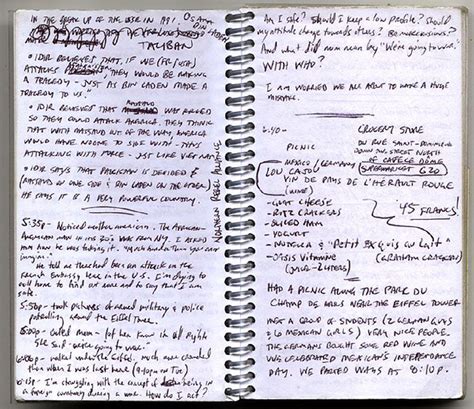 IN THE BREAK UP OF THE USSR IN 1991.
OSAMA BIN LADEN
TALIBAN
• IDIR BELIEVES THAT, IF WE (FR/USA)
ATTACKS, THEY WOULD BE MAKING
A TRAGEDY - JUST AS BIN LADEN MADE A
TRAGEDY TO US."
• IDIR BELIEVES THAT MASSAUD WAS KILLED
SO THEY COULD ATTACK AMERICA. THEY THINK
THAT WITH MASSAUD OUT OF THE WAY AMERICA
WOULD HAVE NO ONE TO SIDE WITH - THUS
ATTACKING WITH FORCE - JUST LIKE VIETNAM
• IDIR SAYS THAT PAKISTAN IS DECIDED &
(MASSAUD ON ONE SIDE & BIN LADEN ON THE OTHER)
HE SAYS IT IS A VERY POWERFUL COUNTRY.
NORTHERN REBEL ALLIANCE
5:35p - Noticed another american. The African-
American man in his 20's was from NY. I asked
him how he was taking it. "Much harder than you can
imagine."
He told me there had been an attack on the
French Embassy here in the U.S. I'm trying to
call home to find out more and to say that I am
safe.
5:50p - took pictures of armed military & police
patrolling around the Eiffel Tower.
6:00p - called mom - let her know I'm all right
She said "we're going to war."
walked under the Eiffel. Much more crowded
than when I was last here (9-10pm on Tue)
I'm struggling with the concept of being in a
foreign country during a war. How do I act?
Am I safe? Should I keep a low profile? Should
my attitude change towards others? Be more serious?
And what did mom mean by "We're going to war."
WITH WHO?
I AM WORRIED WE ARE ABOUT TO MAKE A HUGE
MISTAKE.
6:40 -
GROCERY STORE
ON RUE SAINT-DOMINIQUE
DOWN THE STREET NORTH
OF CAFÉ DÔME
SUPERMARKET G20
PICNIC
MEXICO/GERMANY
LOU CASTOU
VIN DE PAYS DE L'HERAULT ROUGE
(WINE)
45 FRANCS!
- GOAT CHEESE
- RITZ CRACKERS
- SLICED HAM
- YOGURT
- NUTELLA & "Petit Exquis au lait"
(GRAHAM CRACKERS)
- OASIS VITAMINE
(JUICE - 2 LITERS)
HAD A PICNIC ALONG THE PARC DU
CHAMP DE MARS NEAR THE EIFFEL TOWER
MET A GROUP OF STUDENTS (2 GERMAN GUYS
& MEXICAN GIRLS) VERY NICE PEOPLE.
THE GERMANS BOUGHT SOME RED WINE AND
WE CELEBRATED MEXICAN'S INDEPENDANCE
DAY. WE PARTED WAYS AT 8:10P.